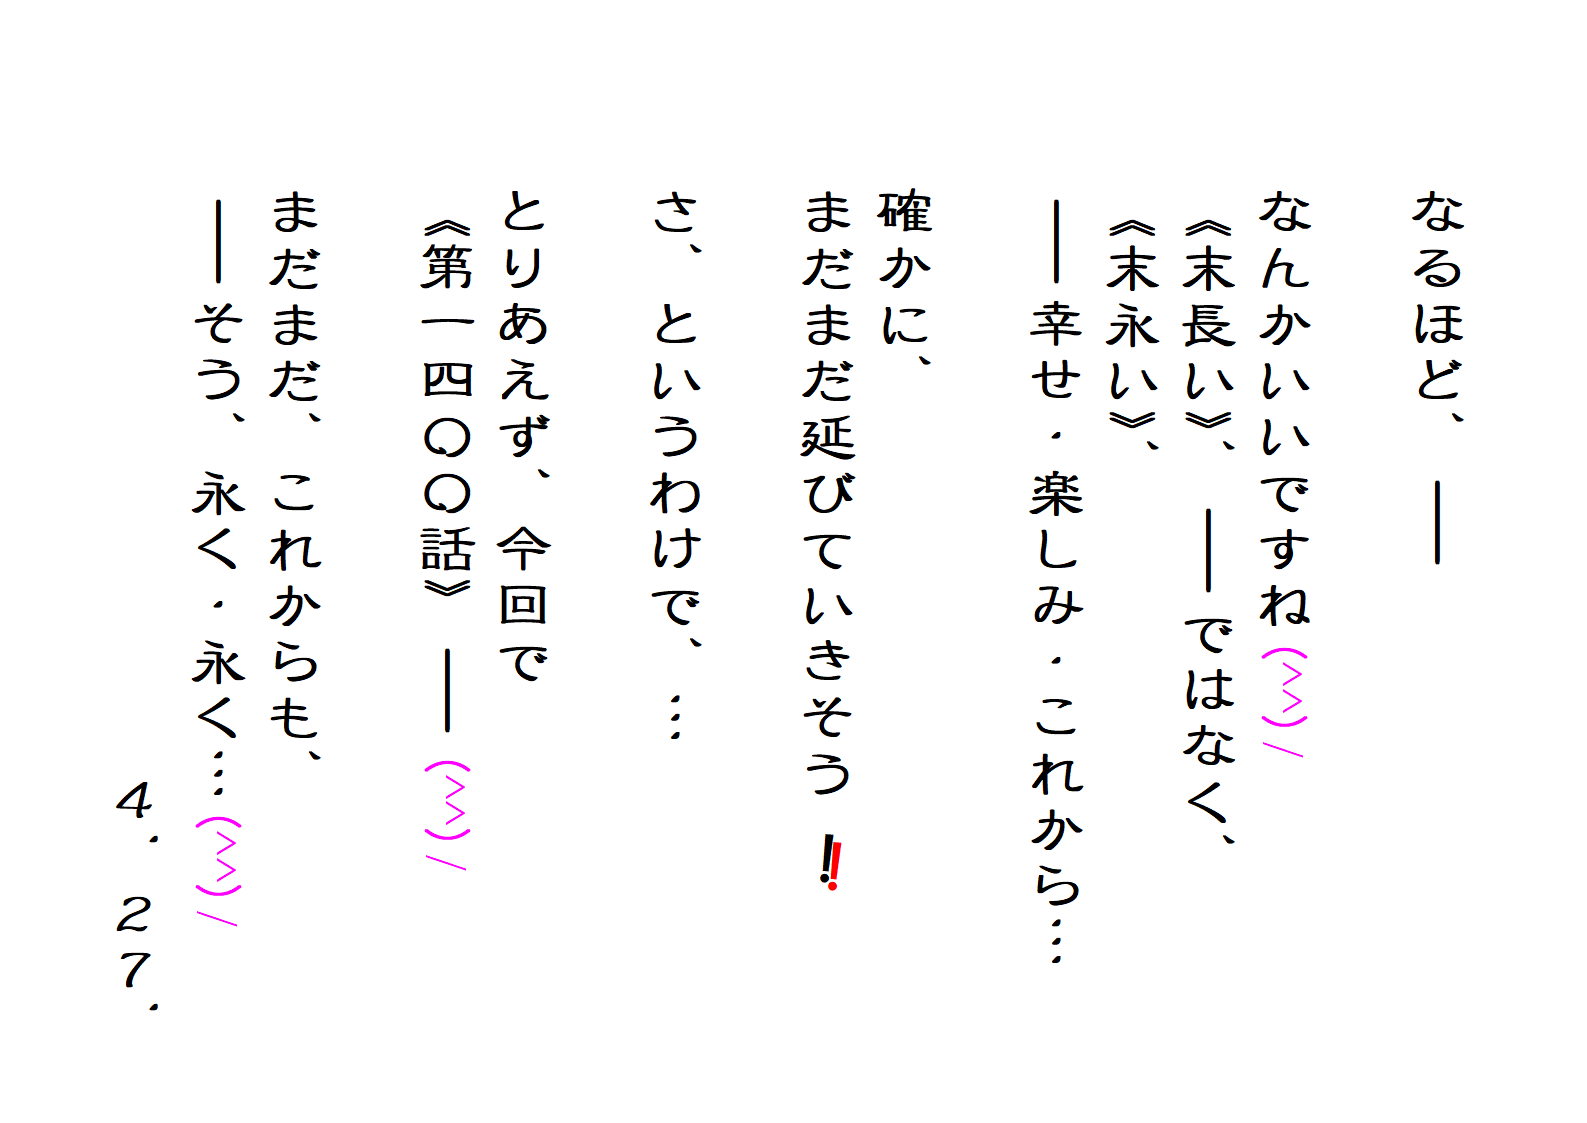 なるほど、――
なんかいいですね(>>)/
《末長い》、――ではなく、
《末永い》、
――幸せ・楽しみ・これから…
確かに、
まだまだ延びていきそう!!
さ、というわけで、…
とりあえず、今回で
《第一四〇〇話》――(>>)/
まだまだ、これからも、
――そう、永く・永く…(>>)/
4.27.